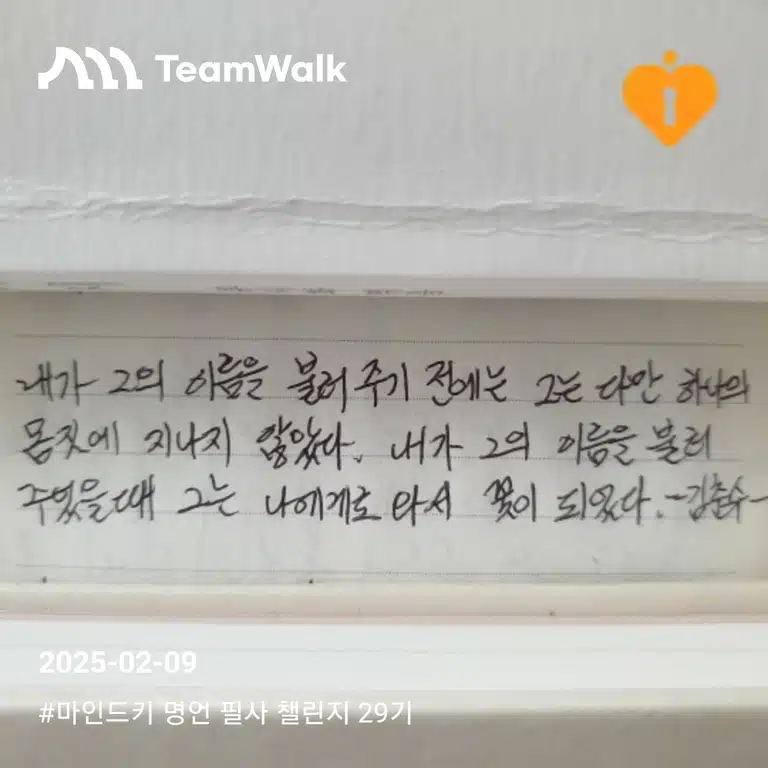 TeamWalk
내가 그의 이름을 불러 주기 전에는 그는 다만 하나의
몸짓에 지나지 않았다. 내가 그의 이름을 불러
주었을때 그는 나에게로 와서 꽃이 되었다. -김춘수-
2025-02-09
#마인드키 명언 필사 챌린지 29기